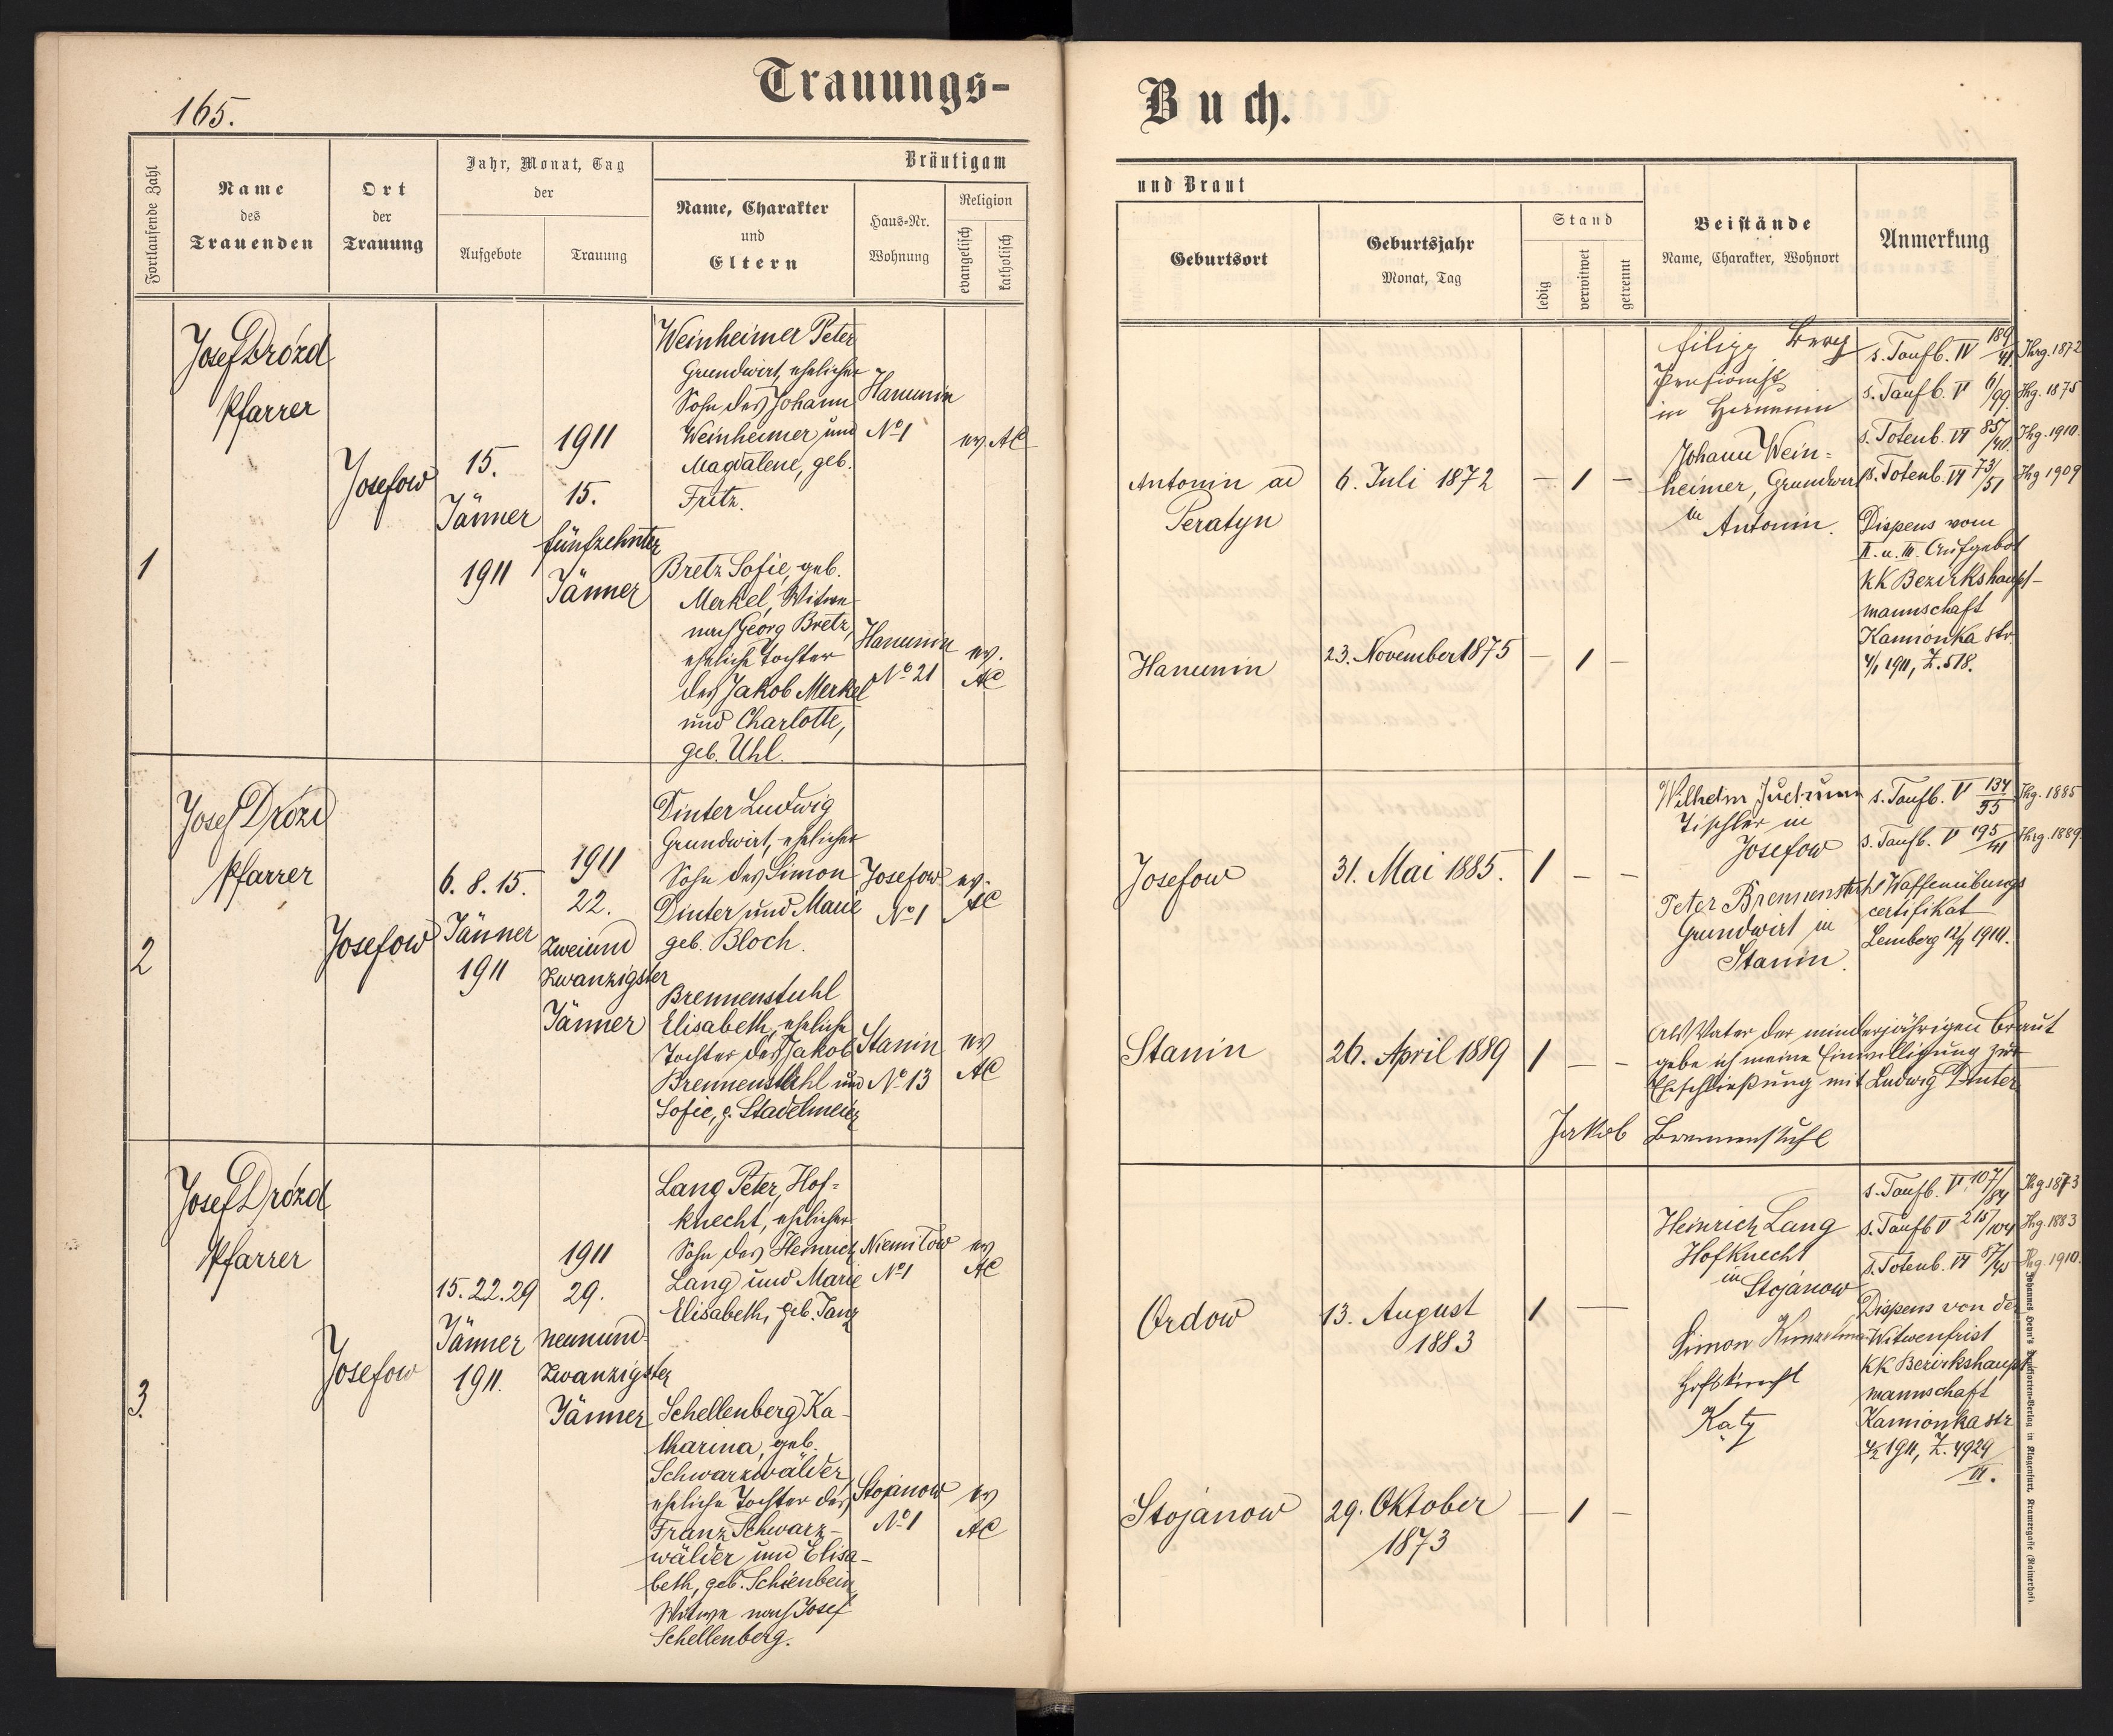 165.
Trauungs-
Fortlaufende Zahl
Name
des
Trauenden
Ort
der
Trauung
Jahr, Monat, Tag
der
Aufgebote
Trauung
Bräutigam
Name, Charakter
und
Eltern
Haus-Nr.
Wohnung
Religion
evangelisch
katholisch
1
Josef Drózd
Pfarrer
Josefow
15.
Jänner
1911
1911
15.
fünfzehnter
Jänner
Weinheimer Peter
Grundwirt, ehelicher
Sohn des Johann
Weinheimer und
Magdalene, geb.
Fritz.
Hanunin
No 1
ev. AC
Bretz Sofie, geb.
Merkel, Witwe
nach Georg Bretz,
eheliche Tochter
des Jakob Merkel
und Charlotte,
geb. Uhl.
Hanunin
No 21
ev.
AC
2
Josef Drózd
Pfarrer
Josefow
6. 8. 15.
Jänner
1911
1911
22.
zweiund
zwanzigster
Jänner
Dinter Ludwig
Grundwirt, ehelicher
Sohn des Simon
Dinter und Marie
geb. Bloch.
Josefow
No 1
ev.
AC
Brennenstuhl
Elisabeth, eheliche
Tochter des Jakob
Brennenstuhl und
Sofie, g. Stadelmeier
Stanin
No 13
ev
AC
3.
Josef Drózd
Pfarrer
Josefow
15. 22. 29
Jänner
1911.
1911
29.
neunund-
zwanzigster
Jänner
Lang Peter, Hof-
knecht, ehelicher
Sohn des Heinrich
Lang und Marie
Elisabeth, geb. Janz
Niemiłow
No 1
ev
AC
Schellenberg Ka-
tharina, geb.
Schwarzwälder
eheliche Tochter des
Franz Schwarz-
wälder und Elisa-
beth, geb. Schienbein,
Witwe nach Josef
Schellenberg.
Stojanow
No 1
ev
AC
Buch.
und Braut
Geburtsort
Geburtsjahr
Monat, Tag
Stand
ledig
verwitwet
getrennt
Beistände
Name, Charakter, Wohnort
Anmerkung
Antonin ad
Peratyn
6. Juli 1872
— 1 —
Filipp Berg
Pensionist
in Hanunin
Johann Wein-
heimer, Grundwirt
in Antonin.
s. Taufb. IV 189/41 Jhrg. 1872
s. Taufb. V 6/99. Jhg. 1875
s. Totenb. VI 85/40. Jhg. 1910.
s. Totenb. VI 73/51 Jhg 1909
Dispens vom
II. u. III. Aufgebot
KK Bezirkshaupt-
mannschaft
Kamionka str
4/1 1911, Z. 518.
Hanunin
23. November 1875
— 1 —
Josefow
31. Mai 1885.
1 — —
Wilhelm
Tischler in
Josefow
Peter Brennenstuhl
Grundwirt in
Stanin.
s. Taufb. V 134/55 Jhg. 1885
s. Taufb. V 195/41 Jhrg. 1889
Waffenübungs
certifikat
Lemberg
Stanin
26. April 1889
1 — —
Als Vater der minderjährigen Braut
gebe ich meine Einwilligung zur
Eheschließung mit Ludwig Dinter
Jakob Brennenstuhl
Ordow
13. August
1883
1 —
Heinrich Lang
Hofknecht
in Stojanow
Simon
Hofsknecht
s. Taufb. V 107/84 Jhg 1873
s. Taufb V 215/104 Jhg. 1883
s. Totenb. VI 87/40 Jhg. 1910.
Dispens von der
Witwenfrist
KK Bezirkshaupt
mannschaft
Kamionka str
1911, Z. 4929
VI.
Stojanow
29. Oktober
1873
— 1 —
Johannes Heyn's Drucksorten-Verlag in Klagenfurt, Kramergasse (Rainerhof)